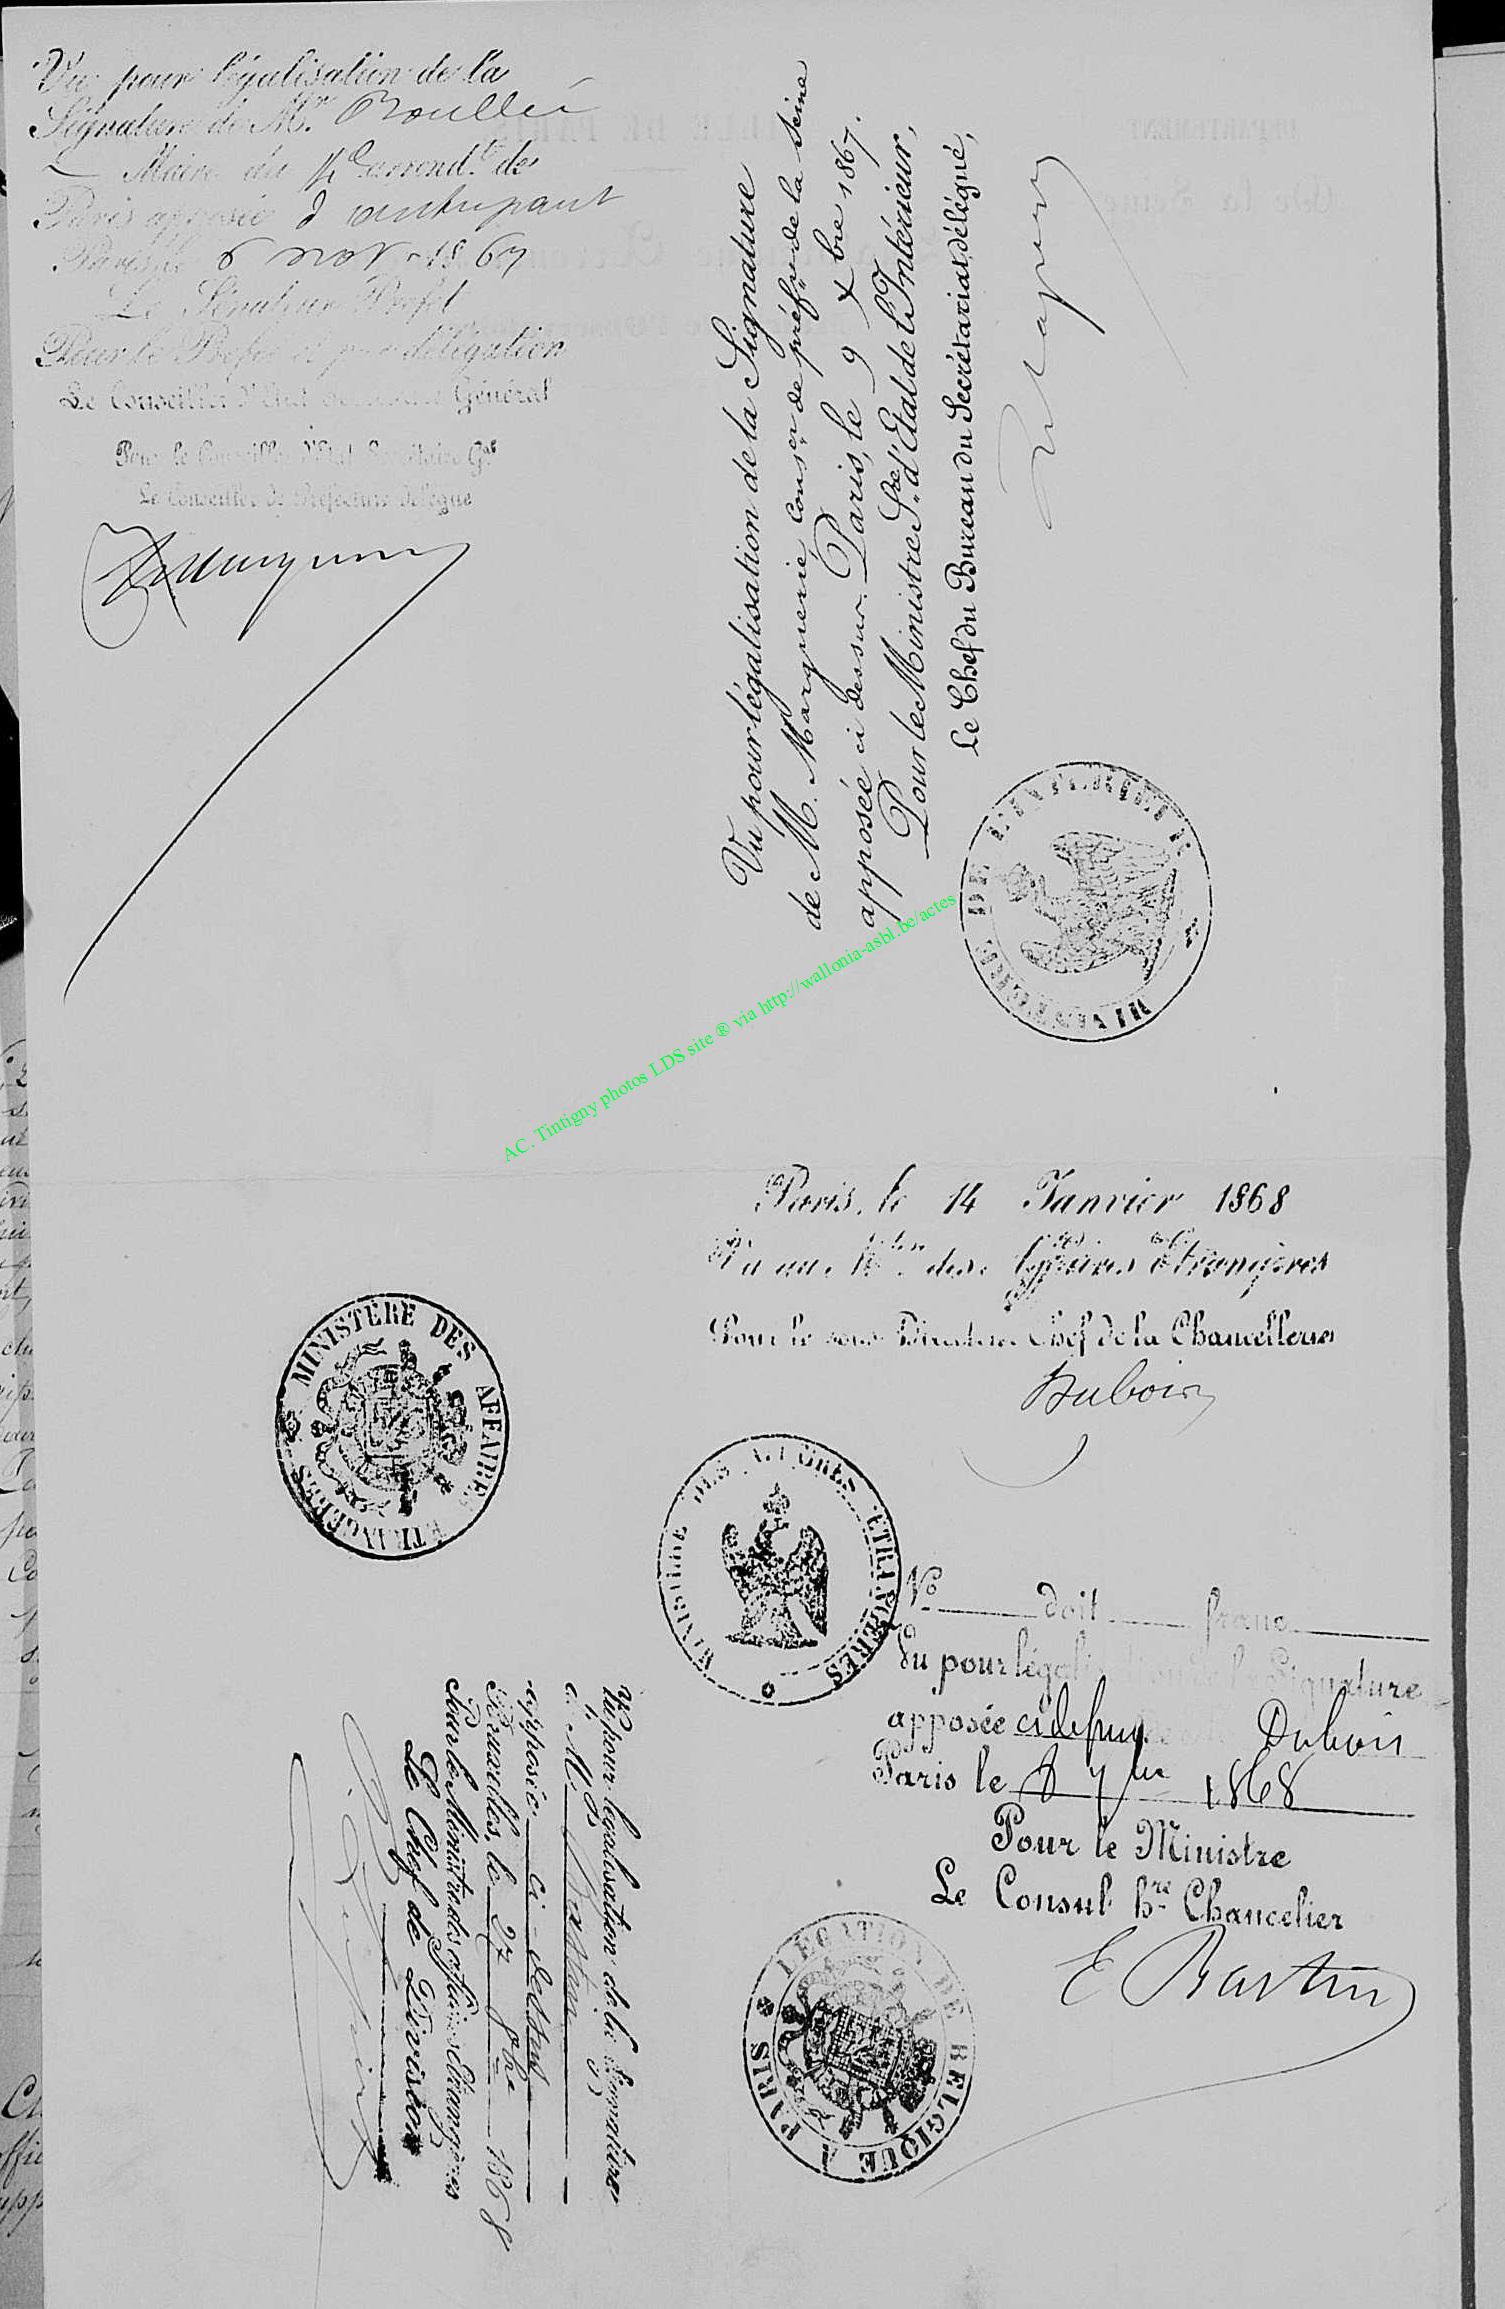 Vu pour légalisation de la
Signature de Mr.
Maire du 14e arrondt. de
Paris apposée d'autre part
Paris le 6 nov. 1867
Le Sénateur Préfet
Pour le Préfet et par délégation
Le Conseiller d'Etat Secrétaire Général
Pour le Conseiller d'Etat Secrétaire Gal
Le Conseiller de Préfecture délégué
Vu pour légalisation de la Signature
de M. Marguerie, Conser. de préfre. de la Seine
apposée ci dessus. Paris, le 9 Xbre 1867.
Pour le Ministre S.re d'Etat de l'Intérieur,
Le Chef du Bureau du Secrétariat, délégué,
MINISTERE DE L'INTERIEUR
AC. Tintigny photos LDS site ® via http://wallonia-asbl.be/actes
Paris, le 14 Janvier 1868
Vu au Mtère des Affaires Etrangères
Pour le sous Directeur Chef de la Chancellerie
Dubois
MINISTÈRE DES AFFAIRES ETRANGÈRES
MINISTERE DES AFFAIRES ETRANGERES
No doit franc
Vu pour légalisation de la Signature
apposée Dubois
Paris le 8 1868
Pour le Ministre
Le Consul hre Chancelier
E Bastin
LÉGATION DE BELGIQUE A PARIS
Vu pour légalisation de la Signature
de M. Bastin
apposée ci-dessus
Bruxelles, le 27 8bre 1868
Pour le Ministre des affaires Etrangères
Le Chef de Division